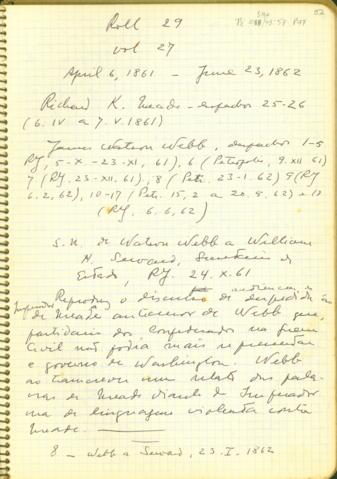 52
Roll 29
vol 27
April 6, 1861 - June 23, 1862
Richard K. Meade - despachos 25-26
(6. IV a 7. V. 1861)
James Watson Webb, despachos 1-5
RJ, 5-X.-23-XI, 61), 6 (Petropolis, 9. XII 61)
7 (RJ. 23-XII. 61), 8 (Petr. 23-1. 62) 9 (RJ
6. 2, 62), 10-17 (Petr. 15, 2 a 20. 5. 62) e 18
(RJ. 6. 6, 62)
S. N. de Watson Webb a William
H. Seward, Secretario de
Estado, RJ. 24. X. 61
audiencia
Reproduz o discurso de despedida
de Meade antecessor de Webb que,
partidario dos Confederados na guerra
Civil não podia mais representar
o governo de Washington. Webb
um relato das pala-
vras de Meade diante do Imperador
de linguagem violenta contra
Meade.
8 - Webb a Seward, 23. I. 1862